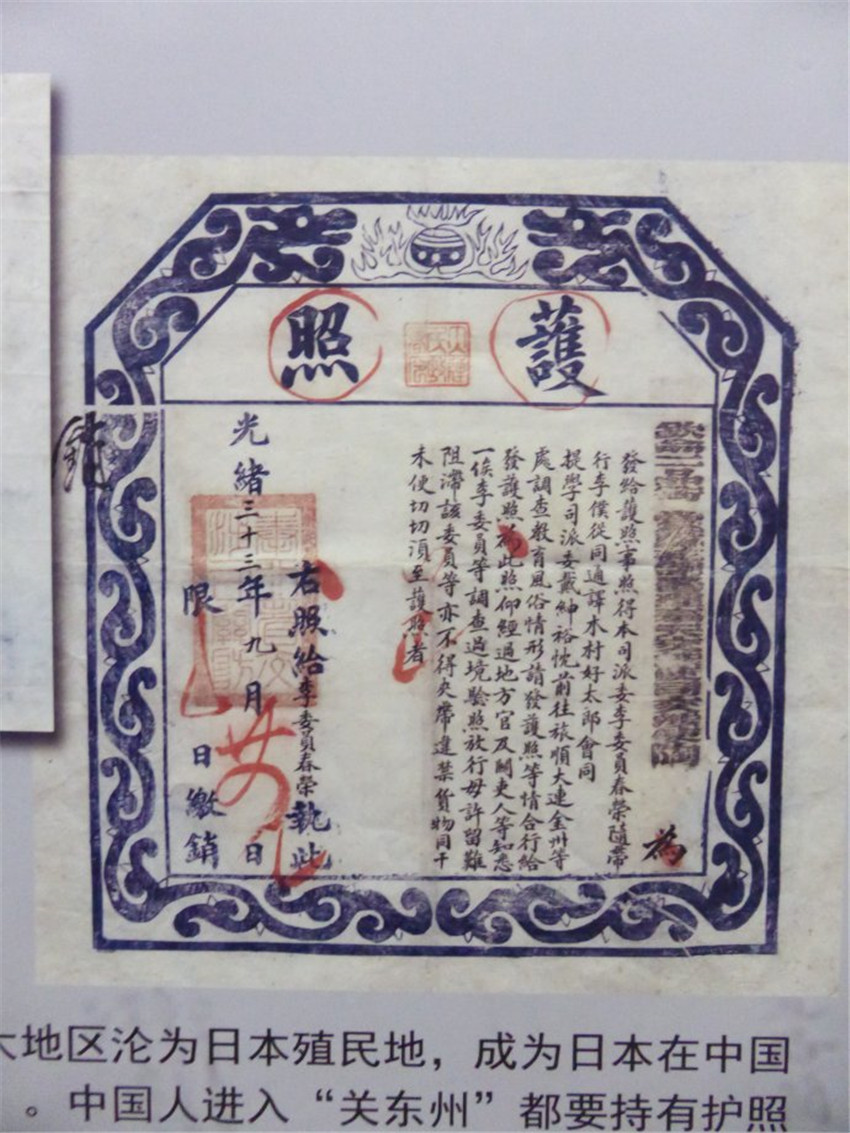 護照
為
發給護照事照得本司派委李委員春榮隨帶
行李僕從同通譯木村好太郎會同
提學司派委戴紳裕忱前往旅順大連金州等
處調查教育風俗情形請發護照等情合行給
發護照為此照仰經過地方官及關吏人等知悉
一俟李委員等調查過境驗照放行毋許留難
阻滯該委員等亦不得夾帶違禁貨物同干
未便切切須至護照者
右照給李委員春榮執此
光緒三十三年九月廿日
限日繳銷
大地区沦为日本殖民地，成为日本在中国
。中国人进入“关东州”都要持有护照